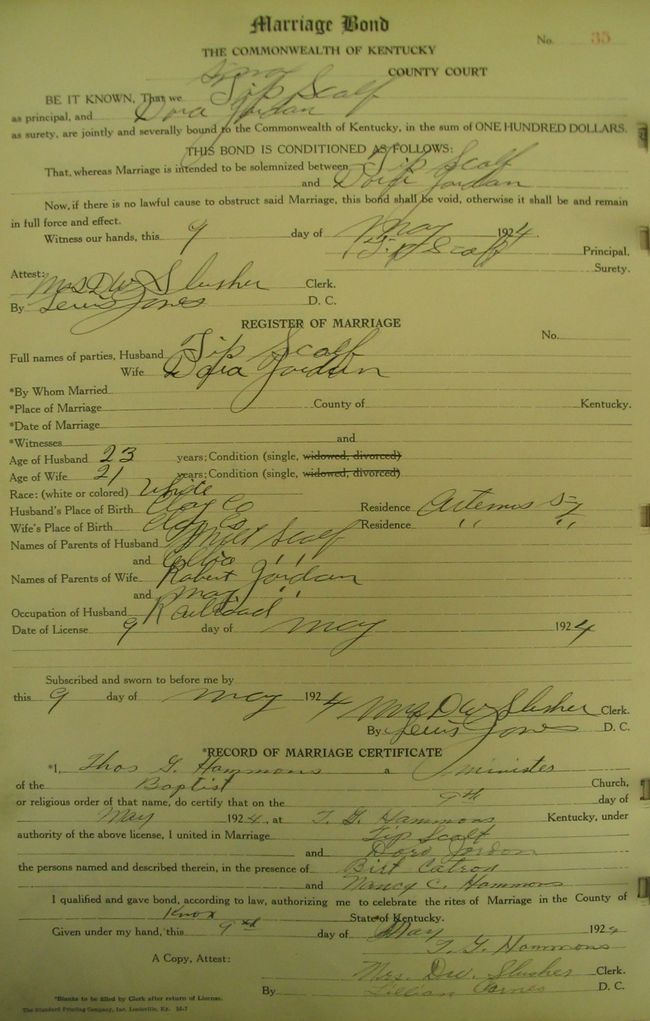 Marriage Bond
No. 35
THE COMMONWEALTH OF KENTUCKY
Knox COUNTY COURT
BE IT KNOWN, That we Tip Scalf
as principal, and Dora Jordan
as surety, are jointly and severally bound to the Commonwealth of Kentucky, in the sum of ONE HUNDRED DOLLARS.
THIS BOND IS CONDITIONED AS FOLLOWS:
That, whereas Marriage is intended to be solemnized between Tip Scalf
and Dora Jordan
Now, if there is no lawful cause to obstruct said Marriage, this bond shall be void, otherwise it shall be and remain
in full force and effect.
Witness our hands, this 9 day of May 1924.
Tip Scalf Principal.
Surety.
Attest:
Mrs D W Slusher Clerk.
By Lewis Jones D. C.
REGISTER OF MARRIAGE
No.
Full names of parties, Husband Tip Scalf
Wife Dora Jordan
*By Whom Married
*Place of Marriage County of Kentucky.
*Date of Marriage
*Witnesses and
Age of Husband 23 years; Condition (single, widowed, divorced)
Age of Wife 21 years; Condition (single, widowed, divorced)
Race: (white or colored) White
Husband's Place of Birth Clay Co Residence Artemus Ky
Wife's Place of Birth Clay Co Residence " "
Names of Parents of Husband Scalf
and " "
Names of Parents of Wife Robert Jordan
and May " "
Occupation of Husband Railroad
Date of License 9 day of May 1924
Subscribed and sworn to before me by
this 9 day of May 1924 Mrs D W Slusher Clerk.
By Lewis Jones D. C.
*RECORD OF MARRIAGE CERTIFICATE
*I, Thos G. Hammons a minister
of the Baptist Church,
or religious order of that name, do certify that on the 9th day of
May 1924, at T. G. Hammons Kentucky, under
authority of the above license, I united in Marriage Tip Scalf
and Dora Jordon
the persons named and described therein, in the presence of Birt Catron
and Nancy C. Hammons
I qualified and gave bond, according to law, authorizing me to celebrate the rites of Marriage in the County of
Knox State of Kentucky.
Given under my hand, this 9 day of May 1924
T. G. Hammons
A Copy, Attest: Mrs. D.W. Slusher Clerk.
By Lillian D. C.
*Blanks to be filled by Clerk after return of License.
The Standard Printing Company, Inc. Louisville, Ky.